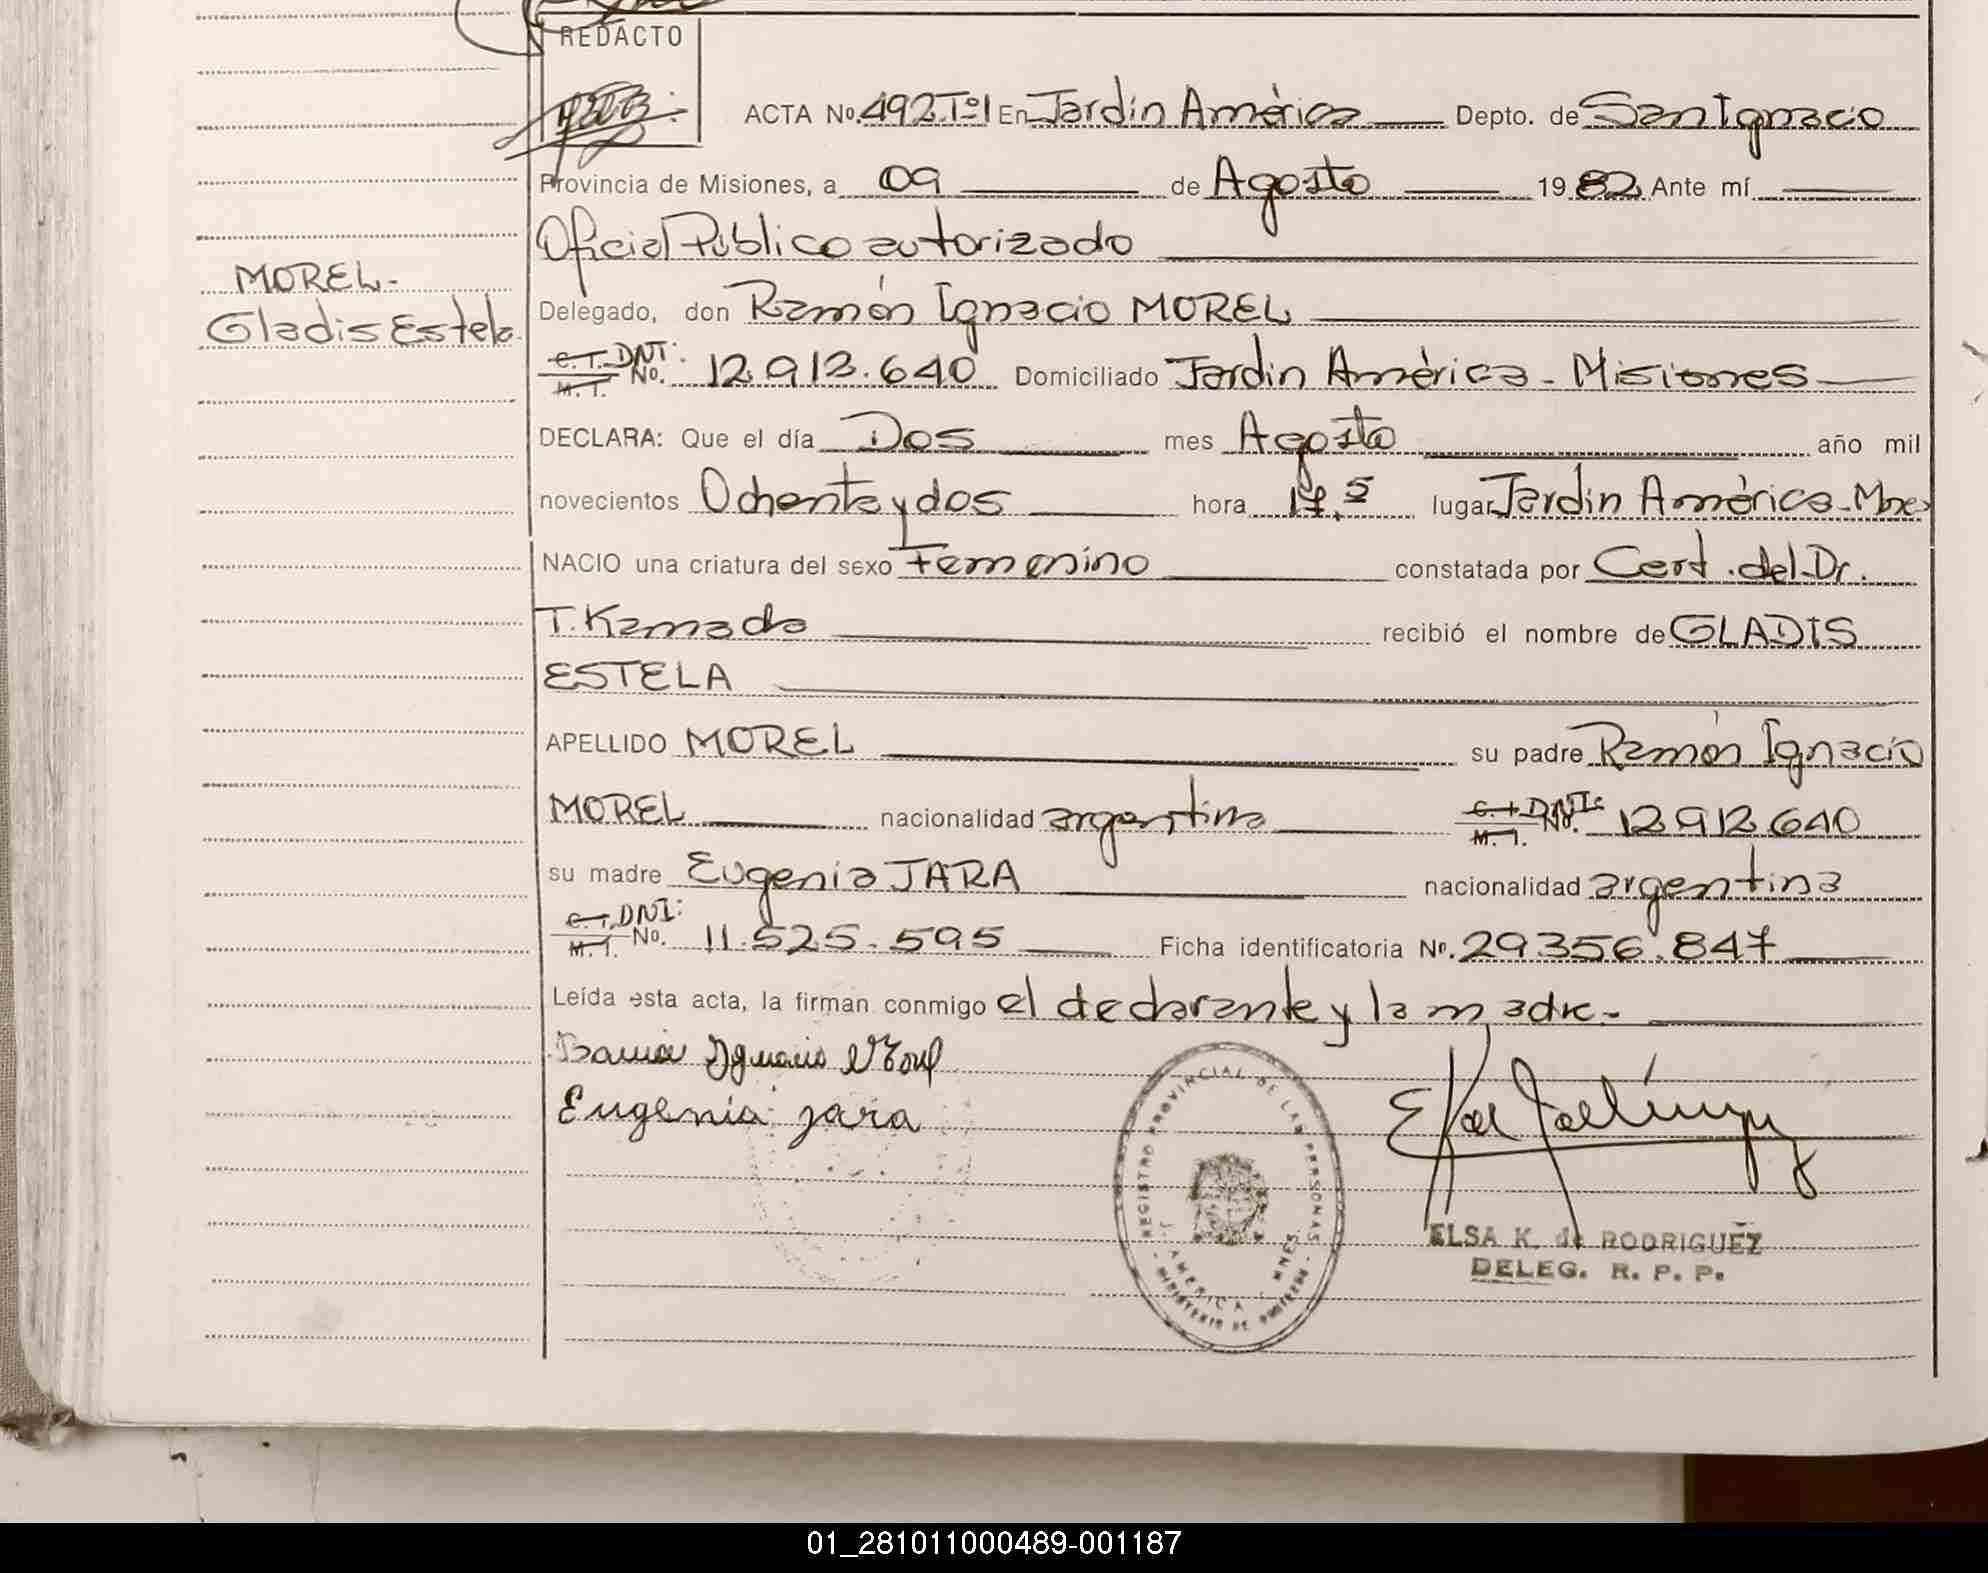 REDACTO
ACTA No. 492 Tº I En Jardín América Depto. de San Ignacio
Provincia de Misiones, a 09 de Agosto 1982 Ante mí
Oficial Público autorizado
MOREL-
Gladis Estela.
Delegado, don Ramón Ignacio MOREL
C. I. DNI: M. I. No. 12.912.640 Domiciliado Jardín América - Misiones
DECLARA: Que el día Dos mes Agosto año mil
novecientos Ochenta y dos hora 17,5 lugar Jardín América - Mnes
NACIO una criatura del sexo Femenino constatada por Cert. del Dr.
T. Kamada recibió el nombre de GLADIS
ESTELA
APELLIDO MOREL su padre Ramón Ignacio
MOREL nacionalidad argentina C. I. DNI: M. I. No. 12.912.640
su madre Eugenia JARA nacionalidad argentina
C. I. DNI: M. I. No. 11.525.595 Ficha identificatoria Nº. 29.356.847
Leída esta acta, la firman conmigo el declarante y la madre.-
Ramón Ignacio Morel
Eugenia jara
REGISTRO PROVINCIAL DE LAS PERSONAS
J. AMERICA - MNES.
MINISTERIO DE GOBIERNO
ELSA K. de RODRIGUEZ
DELEG. R. P. P.
01_281011000489-001187